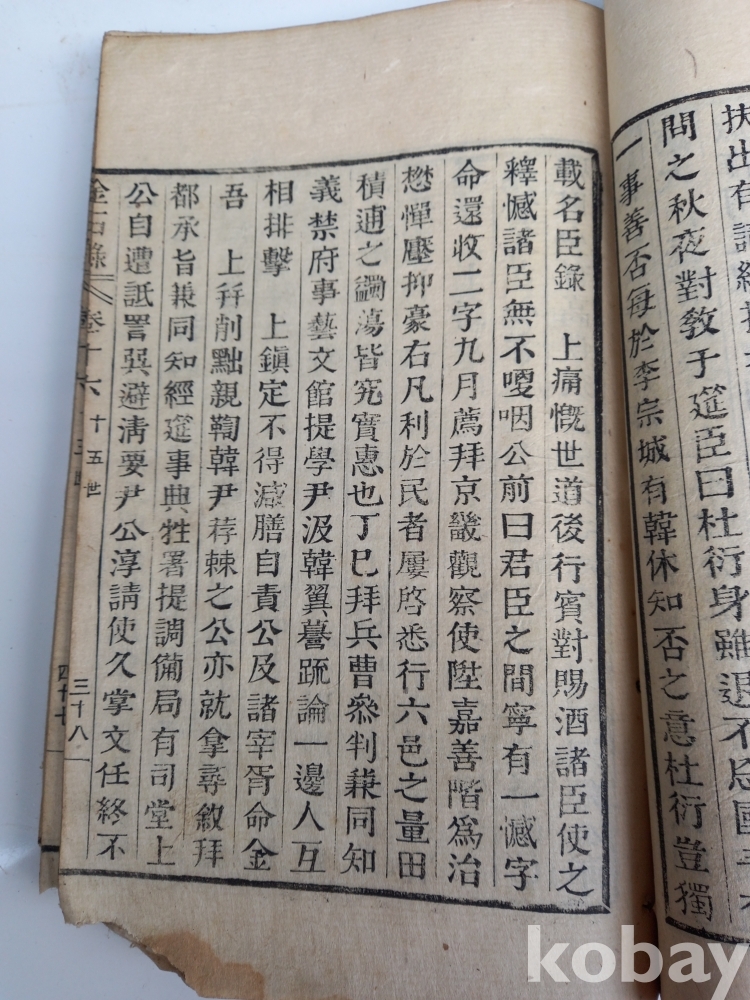 扶出有
問之秋夜對敎于筵臣曰杜衍身雖退不忘國
一事善否每於李宗城有韓休知否之意杜衍豈獨
載名臣錄　上痛慨世道後行賓對賜酒諸臣使之
釋憾諸臣無不嗄咽公前曰君臣之間寧有一憾字
命還收二字九月薦拜京畿觀察使陞嘉善階爲治
懋憚壓抑豪右凡利於民者屢啓悉行六邑之量田
積逋之蠲蕩皆究實惠也丁巳拜兵曹叅判兼同知
義禁府事藝文館提學尹汲韓翼謩疏論一邊人互
相排擊　上鎭定不得減膳自責公及諸宰胥命金
吾　上幷削黜親鞫韓尹荐棘之公亦就拿尋敘拜
都承旨兼同知經筵事典牲署提調備局有司堂上
公自遭詆詈巽避淸要尹公淳請使久掌文任終不
金石錄　卷十六　十五世　三十八
四十七
kobay